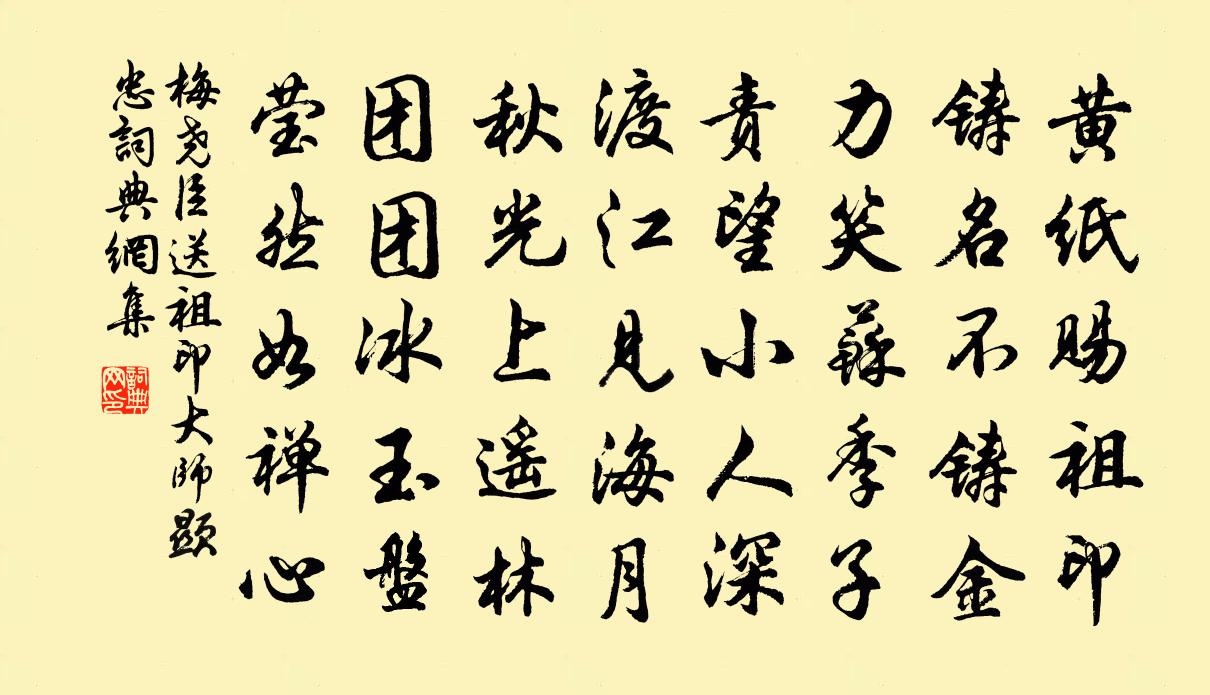 黄纸赐祖印
铸名不铸金
力笑蘇季子
责望小人深
渡江见海月
秋光上遥林
团团冰玉盤
莹然如禅心
梅尧臣送祖印大师显
忠詞典網集
詞典網印